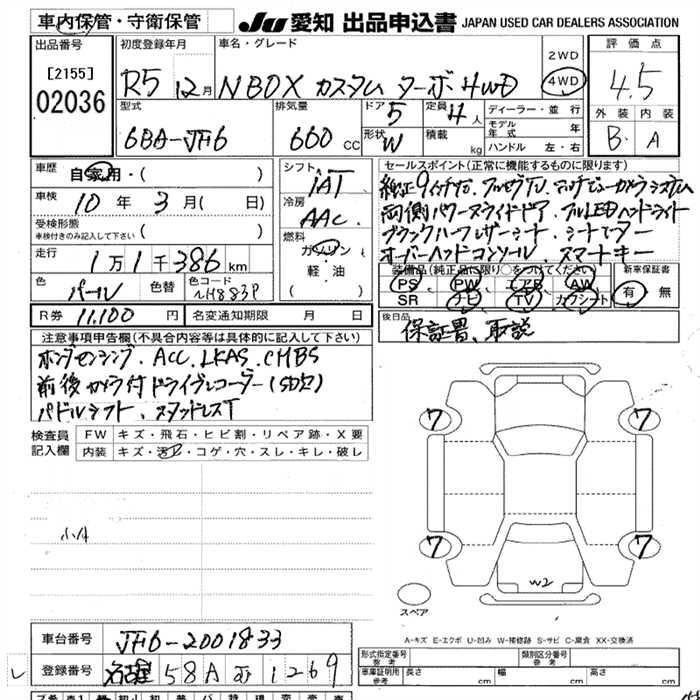 車内保管・守衛保管
JU 愛知 出品申込書 JAPAN USED CAR DEALERS ASSOCIATION
出品番号
[2155]
02036
初度登録年月
R5 12月
車名・グレード
N BOX カスタム ターボ 4WD
2WD
4WD
評価点
4.5
外装 内装
B A
型式
6BA-JF6
排気量
660 CC
ドア 5
形状 W
定員 4人
積載 kg
ディーラー・並行
モデル年式 年
ハンドル 左・右
車歴
自家用・( )
車検
10年 3月( 日)
受検形態
車検付きのみ記入して下さい ( )
走行
1万1千386km
色
パール
色替
色コード
NH883P
シフト
IAT
冷房
AAC
燃料
ガソリン
軽・油
( )
セールスポイント(正常に機能するものに限ります)
純正9インチナビ、フルセグTV、マルチビューカメラシステム
両側パワースライドドア、フルLEDヘッドライト
ブラックハーフレザーシート、シートヒーター
オーバーヘッドコンソール、スマートキー
装備品(純正品に限り○をつけてください)
PS PW エアB AW
SR ナビ TV カワシート
新車保証書
有 無
R券 11,100 円
名変通知期限 月 日
後日品
保証書、取説
注意事項申告欄(不具合内容等は具体的に記入して下さい)
ホンダセンシング、ACC、LKAS、CMBS
前後カメラ付ドライブレコーダー(SD欠)
パドルシフト、スタッドレスT
検査員
記入欄
FW キズ・飛石・ヒビ割・リペア跡・X要
内装 キズ・汚レ・コゲ・穴・スレ・キレ・破レ
小A
7 7
7 7
W2
スペア
A-キズ E-エクボ U-凹み W-補修跡 S-サビ C-腐食 XX-交換済
車台番号 JF6-2001833
登録番号 名古屋 58A 1269
形式指定番号
参考
類別区分番号
参考
車庫証明用
参考
長さ cm 幅 cm 高さ cm